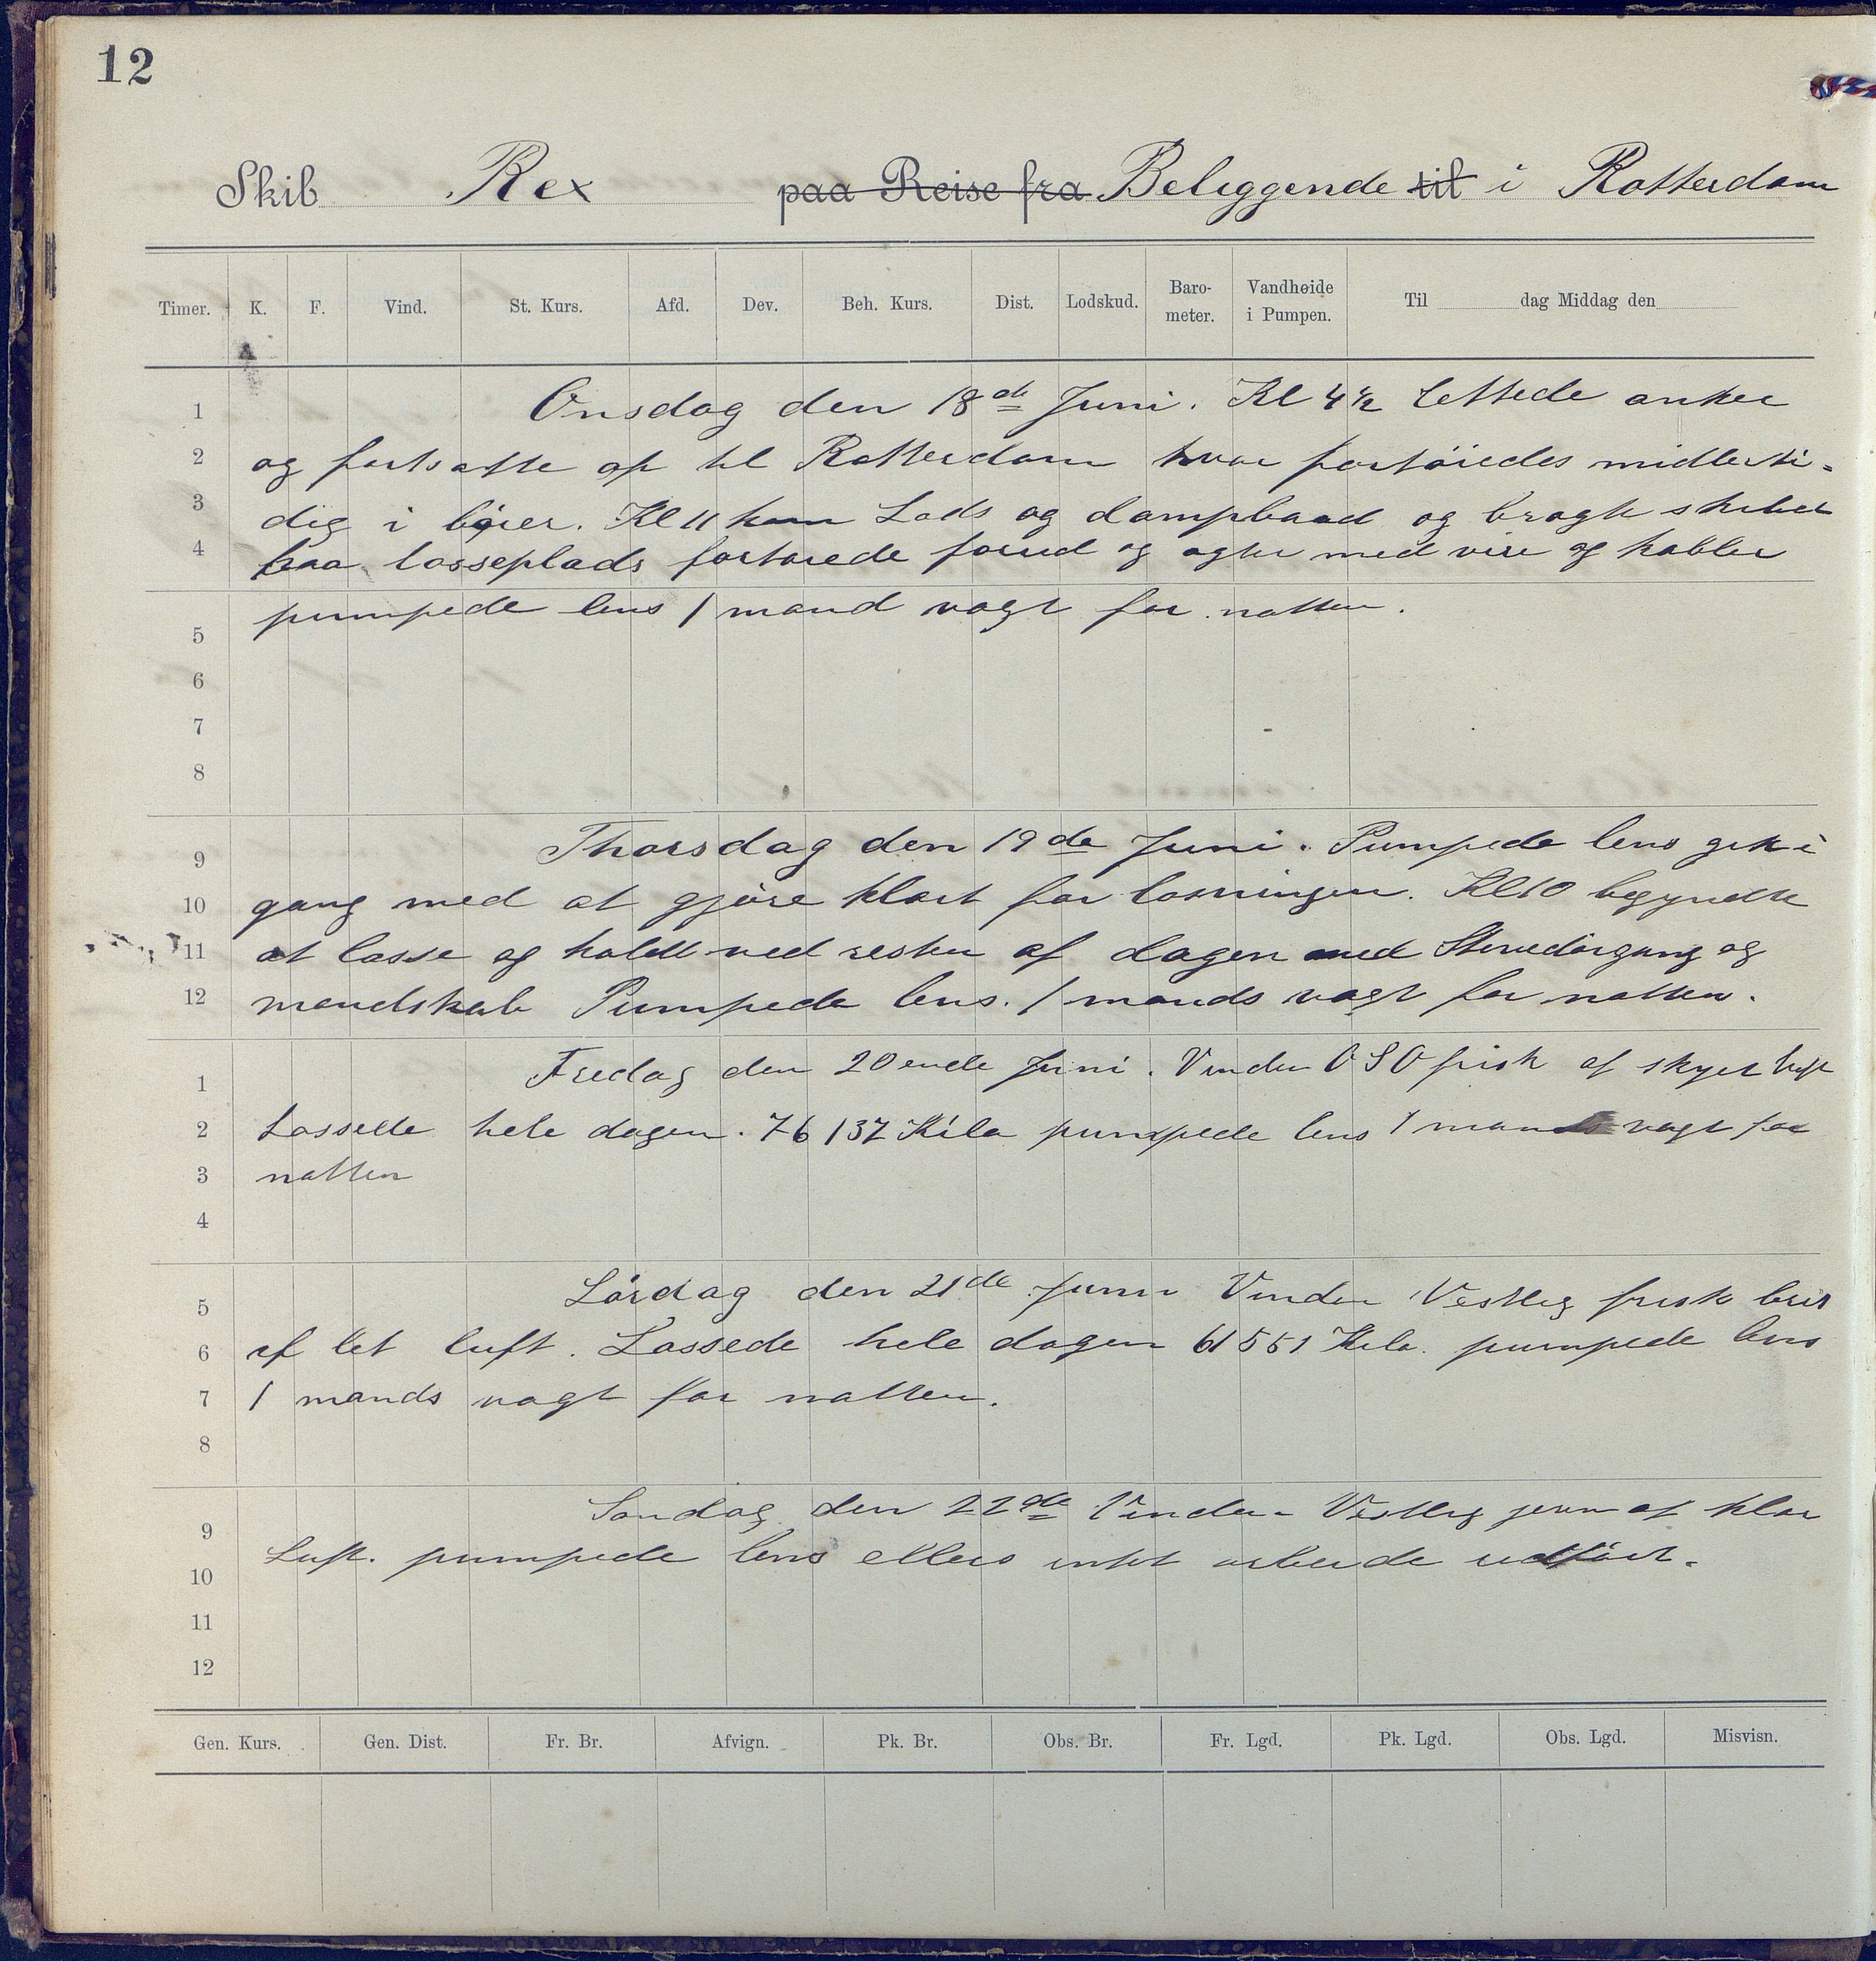 12
Skib Rex paa Reise fra Beliggende til i Rotterdam
Timer. K. F. Vind. St. Kurs. Afd. Dev. Beh. Kurs. Dist. Lodskud. Baro-meter. Vandhøide i Pumpen. Til dag Middag den
1 Onsdag den 18de Juni. Kl 4½ lettede anker
2 og fortsatte op til Rotterdam hvor fortöiedes midlerti-
3 dig i böier. Kl 11 kom Lods og dampbaad og bragte skibet
4 paa losseplads fortöiede forud og agter med vire og kabler
pumpede lens 1 mand vagt for natten.
5
6
7
8
9 Thorsdag den 19de Juni. Pumpede lens gik i
10 gang med at gjöre klart for losningen. Kl 10 begyndte
11 at losse og holdt ved resten af dagen med Stuedörgang og
12 mandskab Pumpede lens. 1 mands vagt for natten.
1 Fredag den 20ende Juni. Vinden OSO frisk af skyet luft
2 Lossede hele dagen. 76137 Kilo pumpede lens 1 mands vagt for
3 natten
4
5 Lördag den 21de Juni Vinden Vestlig frisk bris
6 af let luft. Lossede hele dagen 61551 Kilo. pumpede lens
7 1 mands vagt for natten.
8
9 Sondag den 22de Vinden Vestlig jevn af klar
10 Luft. pumpede lens ellers intet arbeide udfört.
11
12
Gen. Kurs. Gen. Dist. Fr. Br. Afvign. Pk. Br. Obs. Br. Fr. Lgd. Pk. Lgd. Obs. Lgd. Misvisn.